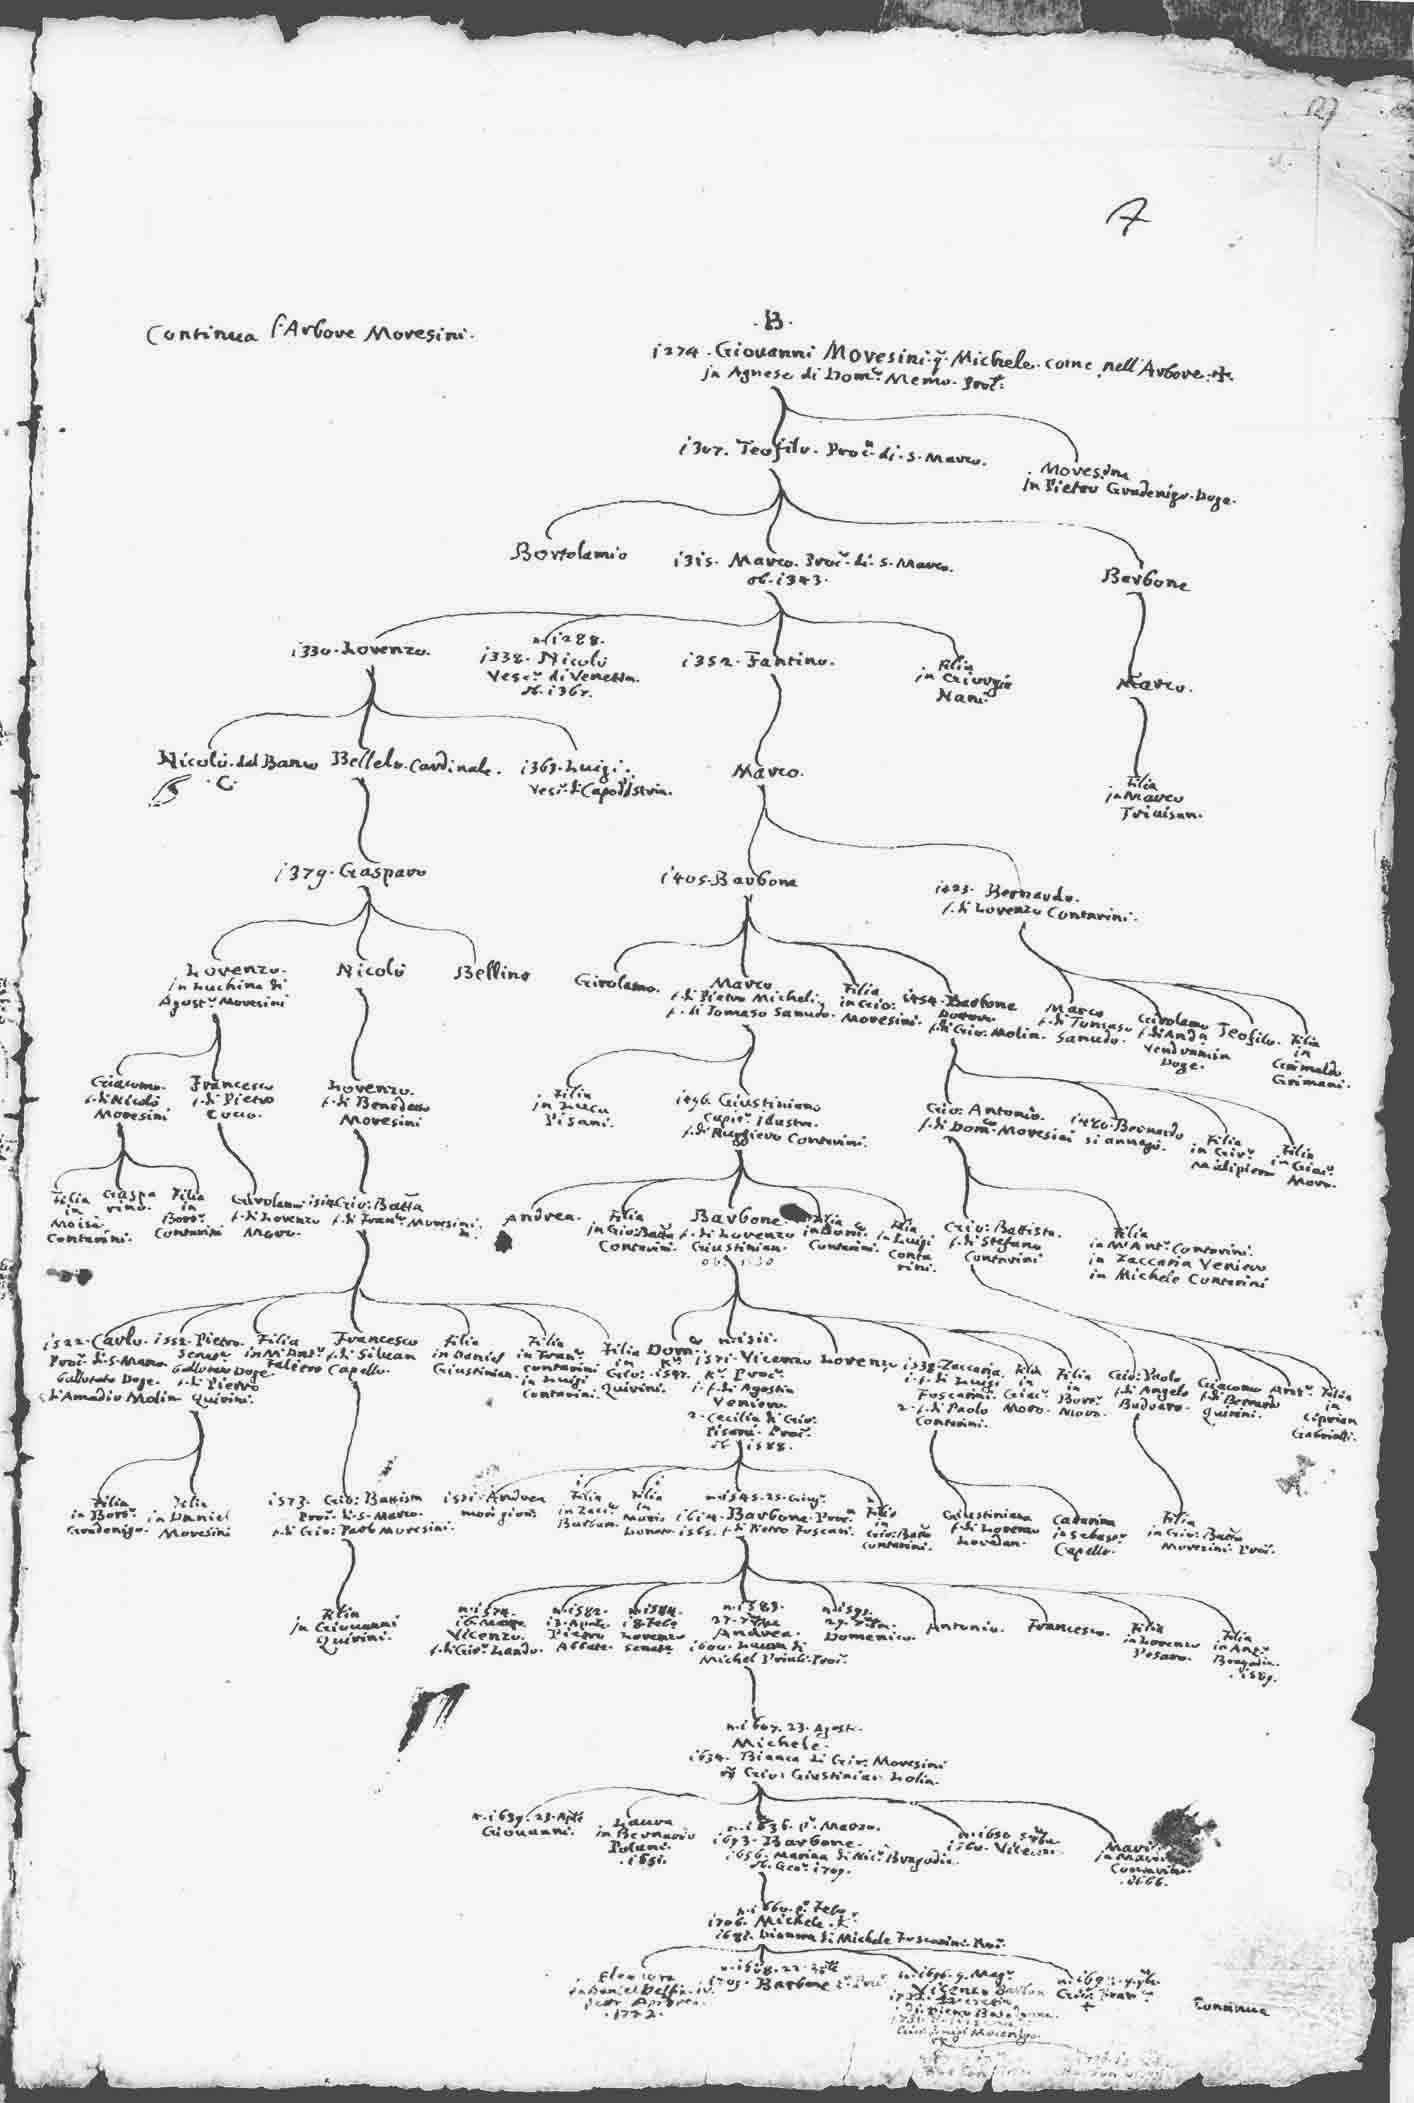 7
Continua l'Arbore Moresini.
.B.
1274. Giovanni Moresini q. Michele come nell'Arbore
in Agnese di Dom.º Memo Proc.
1307. Teofilo. Proc. di S. Marco.
Moresina
in Pietro Gradenigo Doge.
Bortolamio
1315. Marco. Proc. di S. Marco.
ob. 1343.
Barbone
1330. Lorenzo.
n. 1288.
1338. Nicolò
Vesc.º di Venetia.
ob. 1367.
1352. Fantino.
Filia
in Giorgio
Nani
Marco.
Nicolò dal Banco
.C.
Bellelo Cardinale.
1363. Luigi.
Vesc.º di Capod'Istria.
Marco.
Filia
in Marco
Trivisan.
1379. Gasparo
1405. Barbone
1423. Bernardo.
f. di Lorenzo Contarini.
Lorenzo.
in Luchina di
Agost.º Moresini
Nicolò
Bellino
Girolamo.
Marco
f. di Pietro Micheli
f. di Tomaso Sanudo.
Filia
in Gio:
Moresini.
1454. Barbone
f. di Gio. Molin.
Marco
f. di Tomaso
Sanudo.
Girolamo
f. di Anda
Vendramin
Doge.
Teofilo.
Filia
in
Grimaldo
Grimani.
Giacomo.
f. di Nicolò
Moresini
Francesco
f. di Pietro
Cocco.
Lorenzo.
f. di Benedetto
Moresini
Filia
in Luca
Pisani.
1496. Giustiniano
f. di Ruggiero Contarini.
Gio: Antonio.
f. di Dom.º Moresini
1480. Bernardo
si annegò.
Filia
in Gir.º
Malipiero
Filia
in Giac.º
Moro.
Filia
in
Moisè
Contarini.
Gaspa
rino.
Filia
in
Bort.º
Contarini
Girolamo
f. di Lorenzo
Moro.
Gio: Batta
f. di Fran.º Moresini.
Andrea.
Filia
in Gio: Batta
Contarini.
Barbone.
f. di Lorenzo
Giustinian.
Filia
in Dom.º
Contarini.
Filia
in Luigi
Conta
rini.
Gio: Battista.
f. di Stefano
Contarini
Filia
in M. Ant.º Contarini.
in Zaccaria Veniero
in Michele Contarini
1522. Carlo.
Proc. di S. Marco
Ballotato Doge.
f. di Amadio Molin
1552. Pietro.
Senat.
Ballotato Doge.
f. di Pietro
Quirini.
Filia
in M. Ant.º
Faliero
Francesco
f. di Silvan
Capello.
Filia
in Daniel
Giustinian.
Filia
in Fran.º
Contarini
in Luigi
Contarini.
Filia
in
Gio:
Quirini.
Dom.º
K.
n. 1511.
1571. Vicenzo
K. Proc.
1. f. di Agostin
Veniero.
2. Cecilia di Gio:
Pisani Proc.
ob. 1588.
Lorenzo
1538. Zaccaria.
1. f. di Luigi
Foscarini.
2. f. di Paolo
Contarini.
Filia
in
Giac.º
Moro.
Filia
in
Bort.º
Moro.
Gio: Paolo
f. di Angelo
Badoaro.
Giacomo
f. di Bernardo
Quirini.
Ant.º
Filia
in
Ciprian
Gabrielli.
Filia
in Bort.º
Gradenigo.
Filia
in Daniel
Moresini
1573. Gio: Battista
Proc. di S. Marco.
f. di Gio: Paolo Moresini.
1571. Andrea
morì giov.
Filia
in Zacc.º
Barbaro.
Filia
in
Marin
Donato.
n. 1545. 25. Giug.
1612. Barbone. Proc.
1565. f. di Pietro Foscari.
Filia
in
Gio: Batta
Contarini.
Giustiniana
f. di Lorenzo
Loredan.
Catarina
in Sebast.
Capello.
Filia
in Gio: Batta
Moresini Proc.
Filia
in Giovanni
Quirini.
n. 1574.
Vicenzo.
f. di Gir.º Lando.
n. 1582.
Pietro
Abbate.
n. 1584.
18. Feb.
Lorenzo
Senat.
n. 1583.
Andrea.
1600. Laura di
Michel Priuli Proc.
Domenico.
Antonio.
Francesco.
Filia
in Lorenzo
Pesaro.
Filia
in Ant.º
Bragadin.
1589.
n. 1607. 23. Agost.
Michele.
1634. Bianca di Gio: Moresini
Gio: Giustinian Lolin.
n. 1639. 23. Apле
Giovanni.
Laura
in Bernardo
Polani.
1651.
n. 1636. p.º Marzo.
1693. Barbone.
1656. Marina di Nic.º Bragadin.
ob. Gen. 1709.
n. 1650
Vicenzo
Contarini
1666.
n. 1660. Feb.
1706. Michele K.
1687. Dianora di Michele Foscarini Proc.
Barbone
Vicenzo
+
Continua